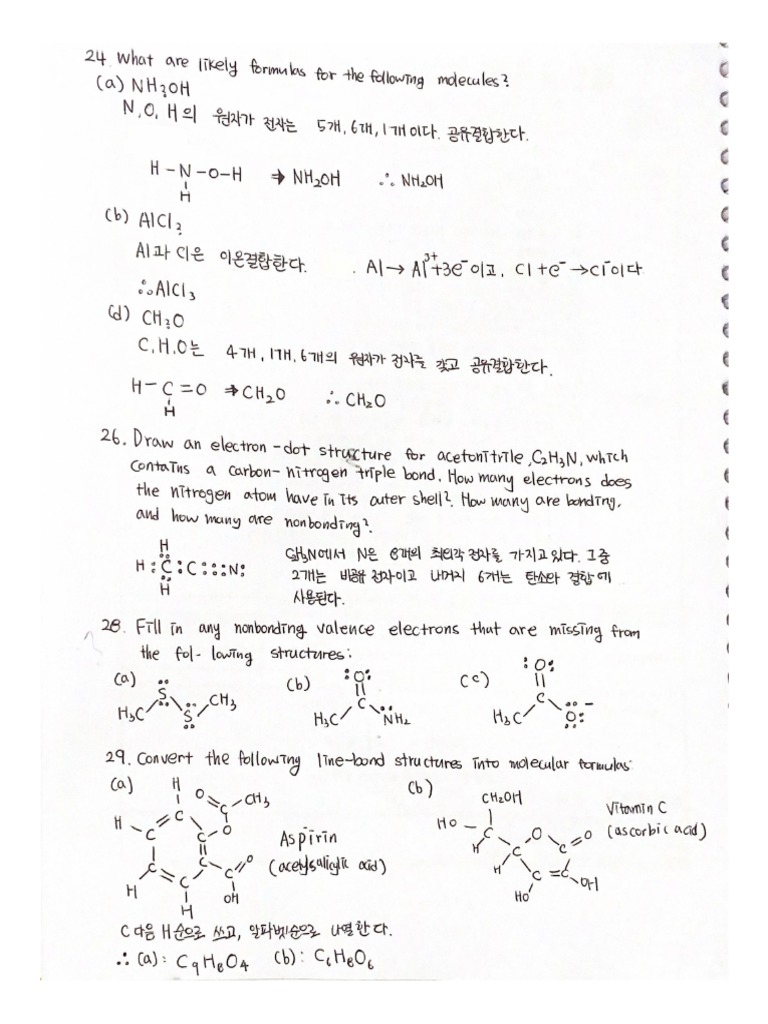 24. What are likely formulas for the following molecules?
(a) NH?OH
N, O, H의 원자가 전자는 5개, 6개, 1개이다. 공유결합한다.
H-N-O-H ⇒ NH₂OH ∴ NH₂OH
H
(b) AlCl?
Al과 Cl은 이온결합한다. . Al → Al³⁺+3e⁻이고, Cl+e⁻→Cl⁻이다
∴ AlCl₃
(d) CH?O
C, H, O는 4개, 1개, 6개의 원자가 전자를 갖고 공유결합한다.
H-C=O ⇒ CH₂O ∴ CH₂O
H
26. Draw an electron-dot structure for acetonitrile, C₂H₃N, which
contains a carbon-nitrogen triple bond. How many electrons does
the nitrogen atom have in its outer shell? How many are bonding,
and how many are nonbonding?
H
H:C:C:::N:
H
C₂H₃N에서 N은 8개의 최외각 전자를 가지고 있다. 그중
2개는 비공유 전자이고 나머지 6개는 탄소와 결합에
사용된다.
28. Fill in any nonbonding valence electrons that are missing from
the fol- lowing structures:
(a) H₃C S S CH₃
(b) :O: H₃C C NH₂
(c) :O: H₃C C :O:⁻
29. Convert the following line-bond structures into molecular formulas:
(a) H O C CH₃
H C C O
C C
C C C O
H C OH
H
Aspirin
(acetylsalicylic acid)
(b) CH₂OH
HO C O C O
H C
H C C OH
HO
Vitamin C
(ascorbic acid)
C 다음 H순으로 쓰고, 알파벳순으로 나열한다.
∴ (a): C₉H₈O₄ (b): C₆H₈O₆